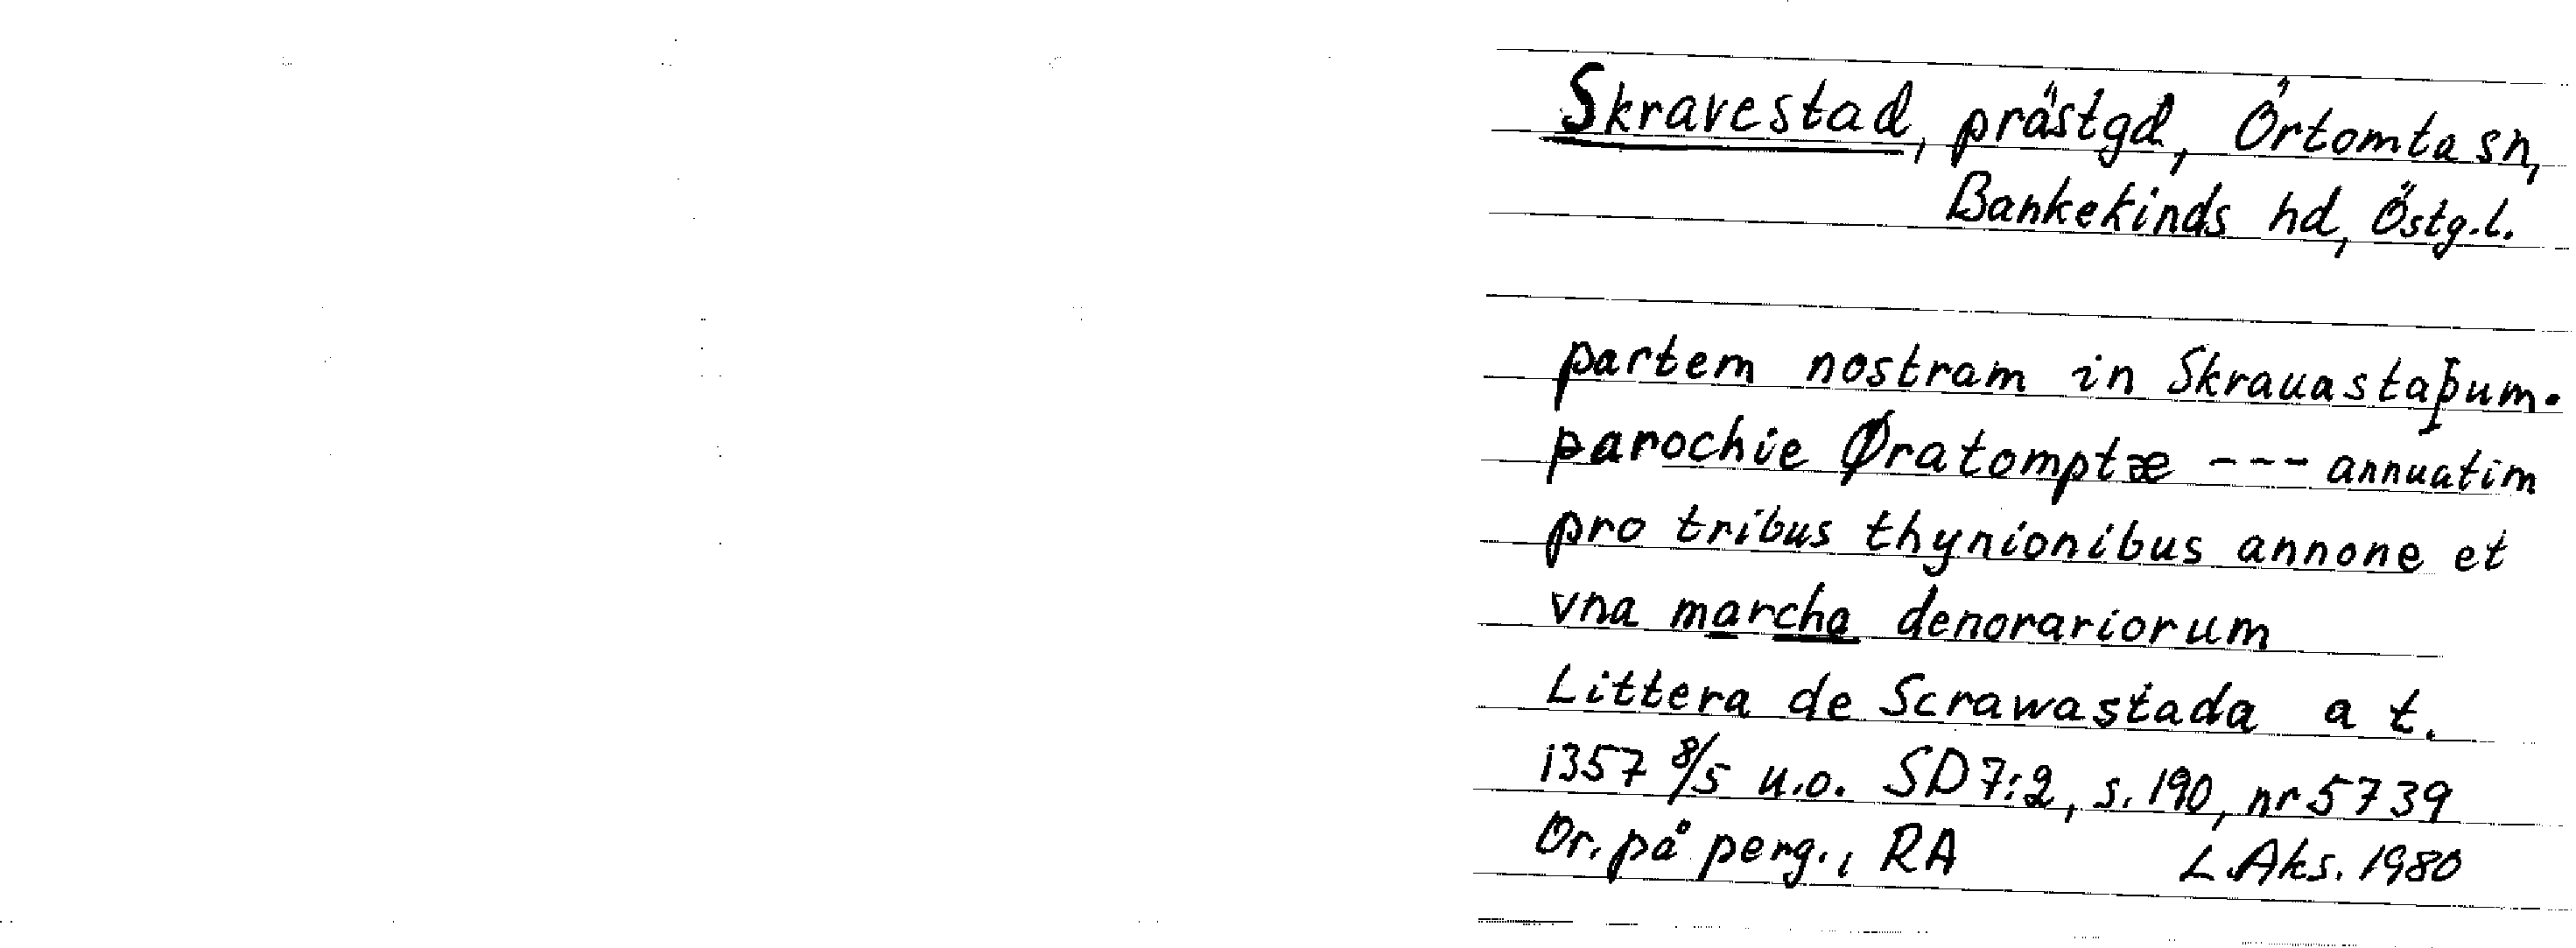 Skravestad, prästgd, Örtomta sn,
Bankekinds hd, Östg.l.
partem nostram in Skrauastaþum.
parochie Øratomptæ --- annuatim
pro tribus thynionibus annone et
vna marcha denorariorum
Littera de Scrawastada a t.
1357 8/5 u.o. SD 7:2, s. 190, nr 5739
Or. på perg., RA L.Aks. 1980